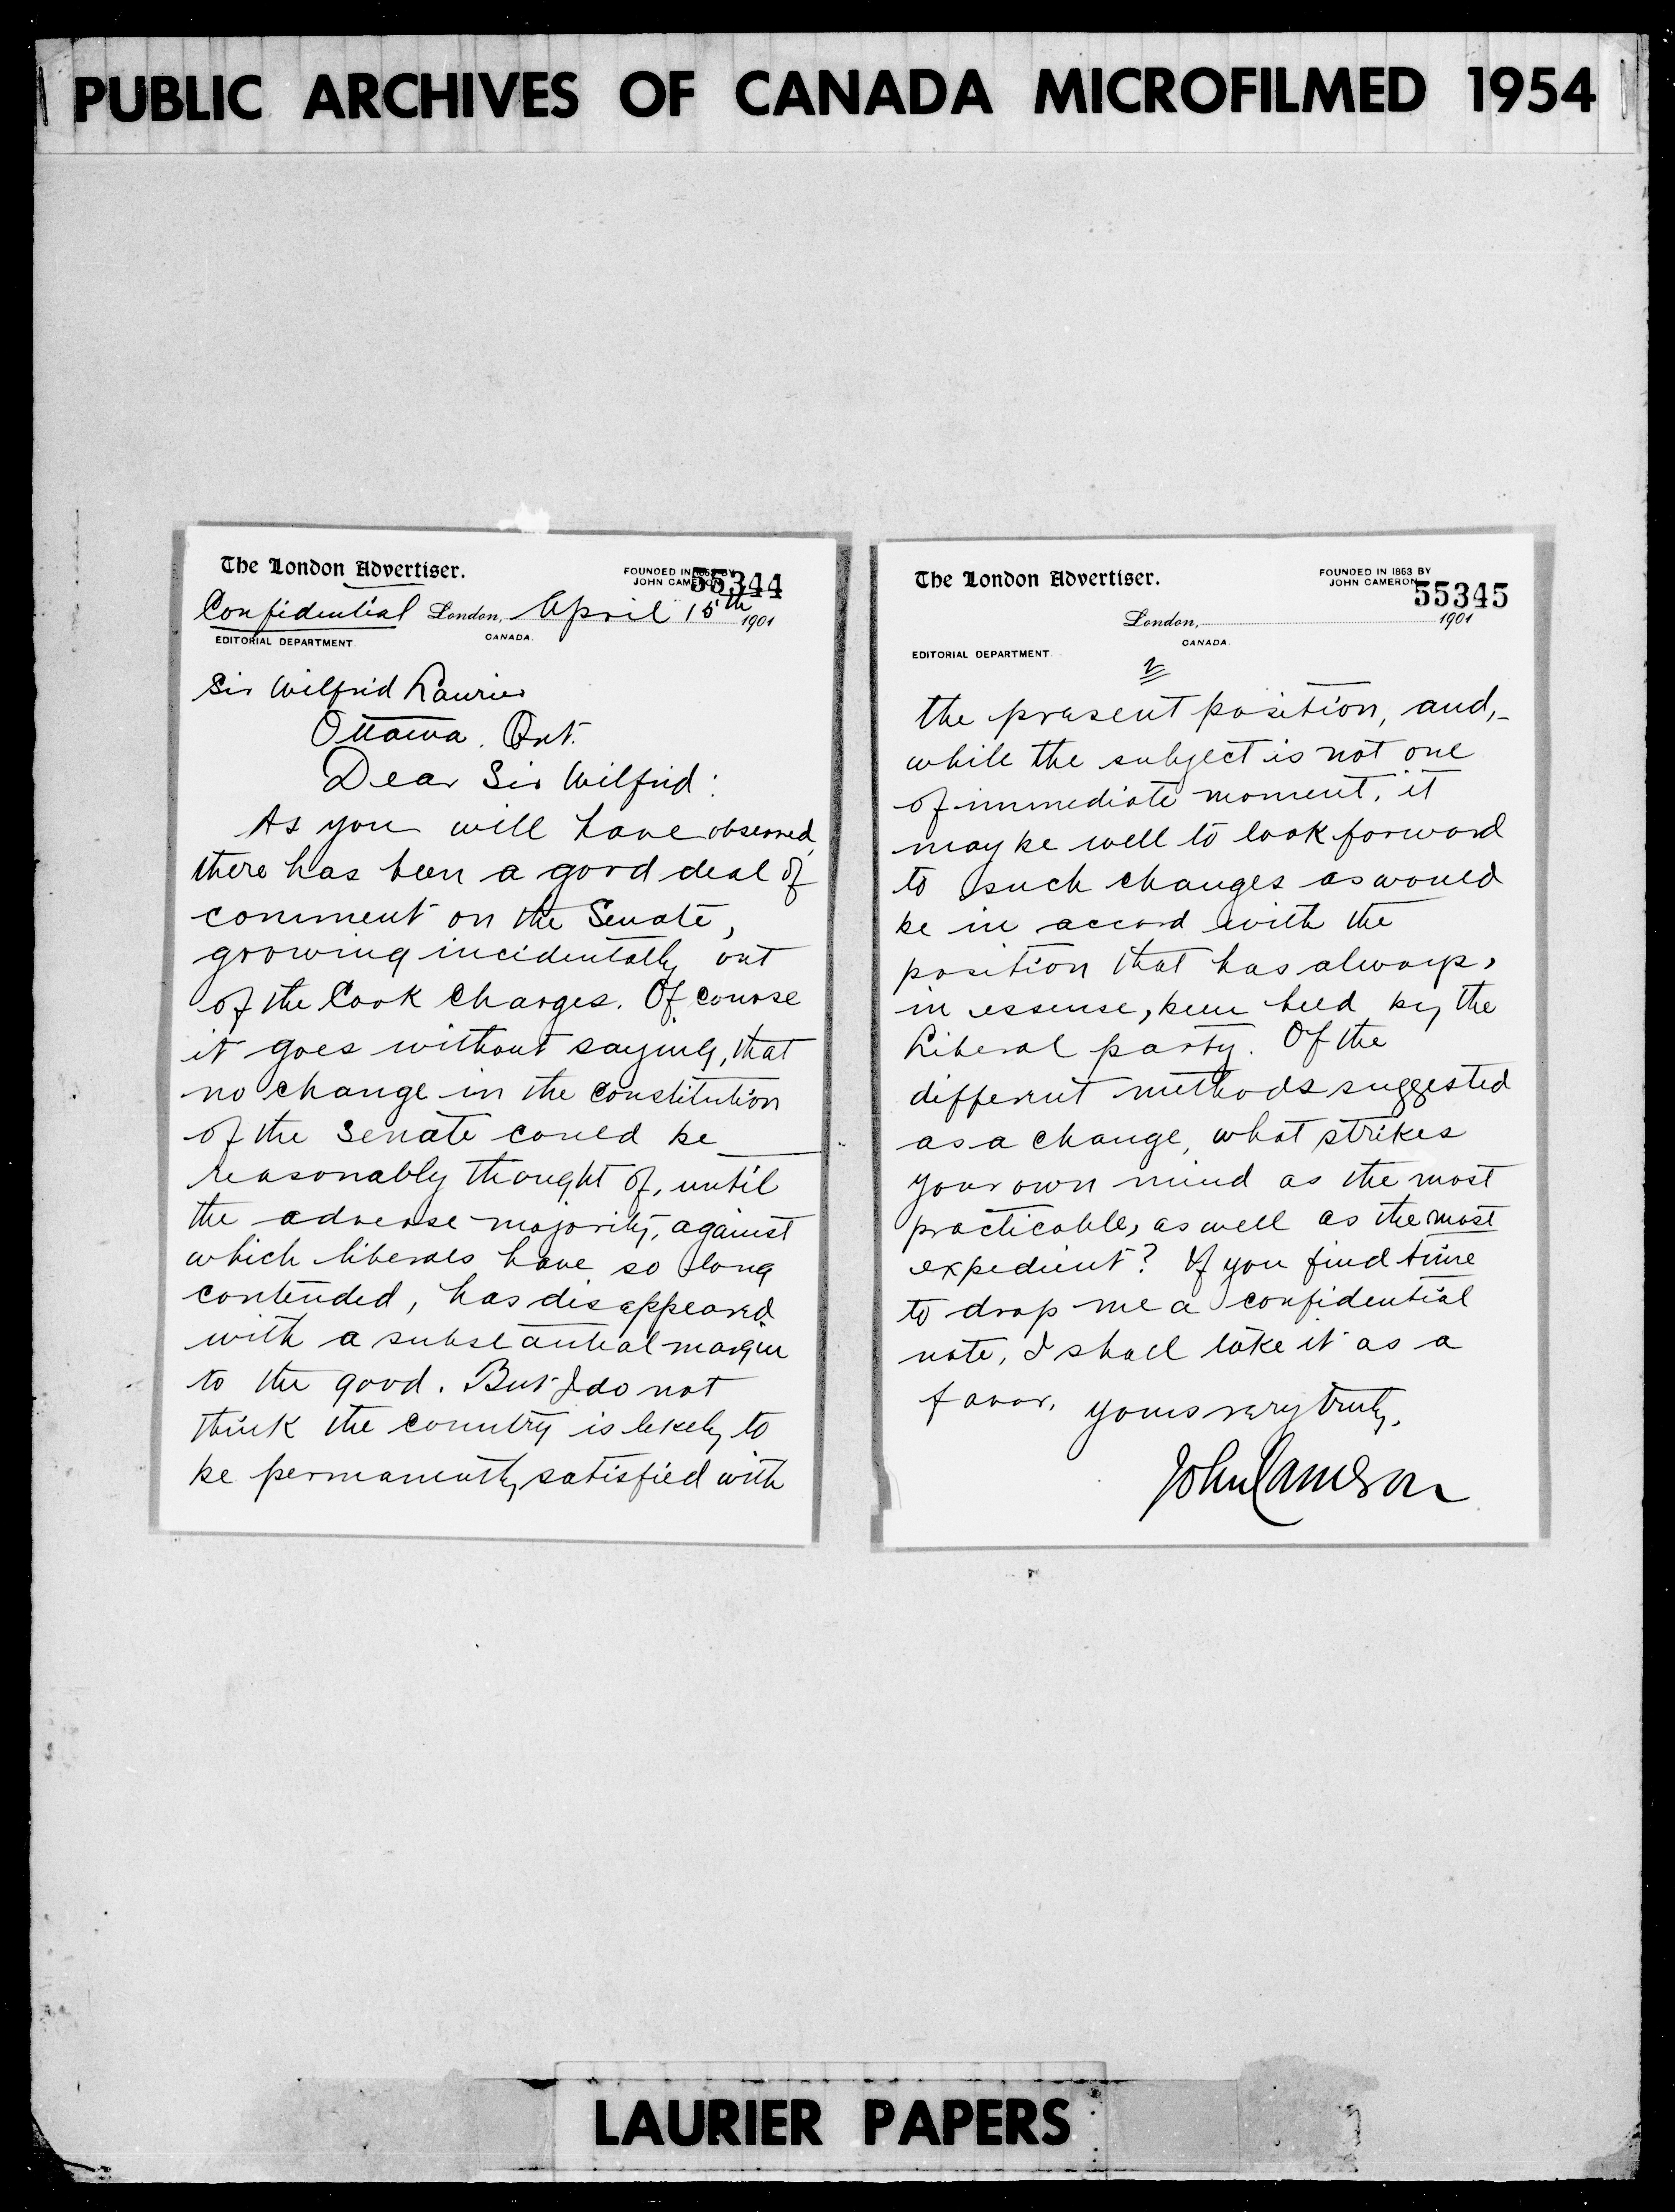 PUBLIC ARCHIVES OF CANADA MICROFILMED 1954
The London Advertiser.
FOUNDED IN 1863 BY
JOHN CAMERON
55344
Confidential London, April 15th 1901
EDITORIAL DEPARTMENT.
CANADA.
Sir Wilfrid Laurier
Ottawa, Ont.
Dear Sir Wilfrid:
As you will have observed,
there has been a good deal of
comment on the Senate,
growing incidentally out
of the Cook Charges. Of course
it goes without saying, that
no change in the constitution
of the Senate could be
reasonably thought of, until
the adverse majority, against
which liberals have so long
contended, has disappeared
with a substantial margin
to the good. But I do not
think the country is likely to
be permanently satisfied with
The London Advertiser.
FOUNDED IN 1863 BY
JOHN CAMERON
55345
London, 1901
CANADA.
EDITORIAL DEPARTMENT.
2
the present position, and,-
while the subject is not one
of immediate moment, it
may be well to look forward
to such changes as would
be in accord with the
position that has always,
in essense, been held by the
Liberal party. Of the
different methods suggested
as a change, what strikes
your own mind as the most
practicable, as well as the most
expedient? If you find time
to drop me a confidential
note, I shall take it as a
favor. Yours very truly,
John Cameron
LAURIER PAPERS